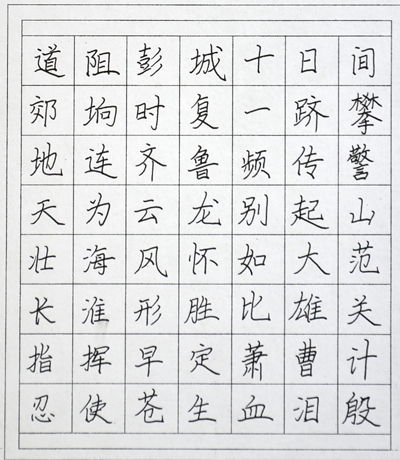 道阻彭城十日间
郊坰时复一跻攀
地连齐鲁频传警
天为云龙别起山
壮海风怀如大范
长淮形胜比雄关
指挥早定萧曹计
忍使苍生血泪殷